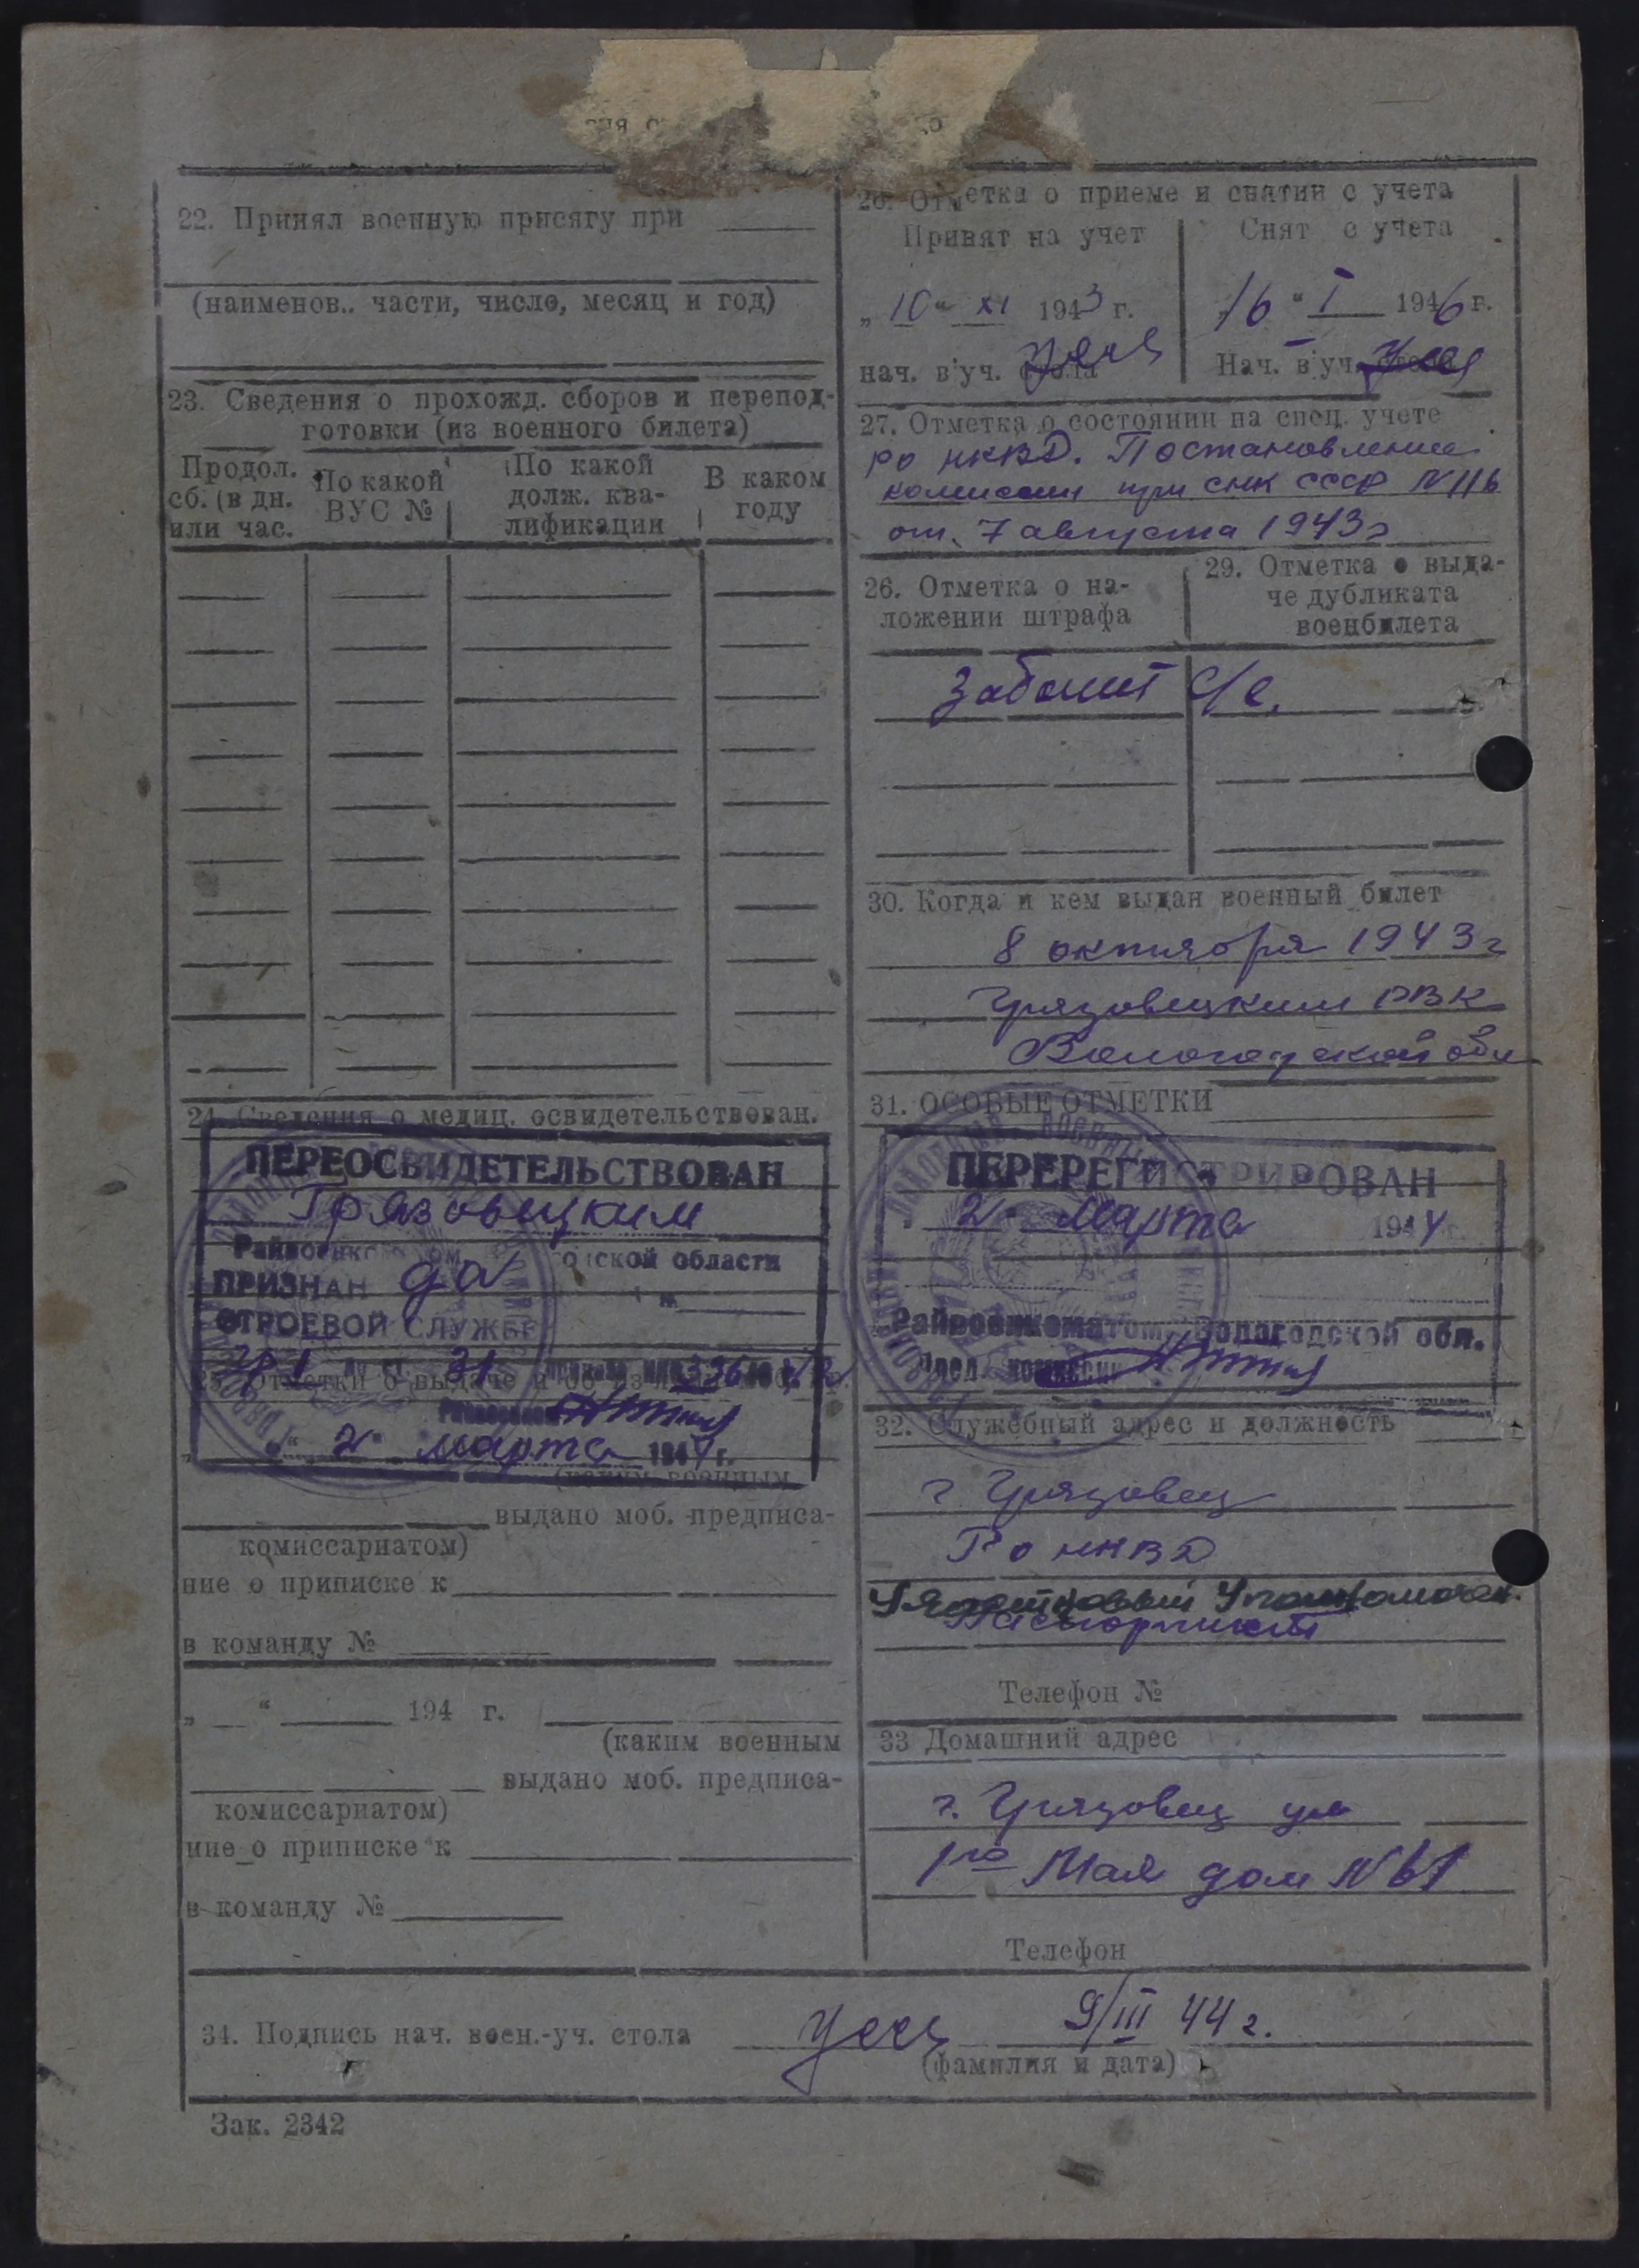 22. Принял военную присягу при
(наименов.. части, число, месяц и год)
23. Сведения о прохожд. сборов и перепод-
готовки (из военного билета)
Продол.
сб. (в дн.
или час.
По какой
ВУС №
По какой
долж. ква-
лификации
В каком
году
24. Сведения о медиц. освидетельствован.
ПЕРЕОСВИДЕТЕЛЬСТВОВАН
Грязовецким
ской области
ПРИЗНАН
СТРОЕВОЙ СЛУЖБЕ
" 2 " марта 194 г.
(каким военным
выдано моб. предписа-
комиссариатом)
ние о приписке к
в команду №
„ “ 194 г.
(каким военным
выдано моб. предписа-
комиссариатом)
ние о приписке к
в команду №
26. Отметка о приеме и снятии с учета
Принят на учет
Снят с учета
„ 10 “ XI 1943 г.
„ 16 “ I 1946 г.
нач. в уч. стола
Нач. в уч. стола
27. Отметка о состоянии на спец. учете
РО НКВД. Постановление
комиссии при СНК СССР N 116
от 7 августа 1943 г
26. Отметка о на-
ложении штрафа
29. Отметка о выда-
че дубликата
военбилета
30. Когда и кем выдан военный билет
8 октября 1943 г
Грязовецким РВК
Вологодской обл
31. ОСОБЫЕ ОТМЕТКИ
ПЕРЕРЕГИСТРИРОВАН
" 2 " Марта 1944 г.
Райвоенкоматом Вологодской обл.
Пред. комиссии
32. Служебный адрес и должность
г Грязовец
РО НКВД
Участковый Уполномочен.
Паспортист
Телефон №
33 Домашний адрес
г. Грязовец ул
1го Мая дом N 61
Телефон
34. Подпись нач. воен.-уч. стола 9/III 44 г.
(фамилия и дата)
Зак. 2342